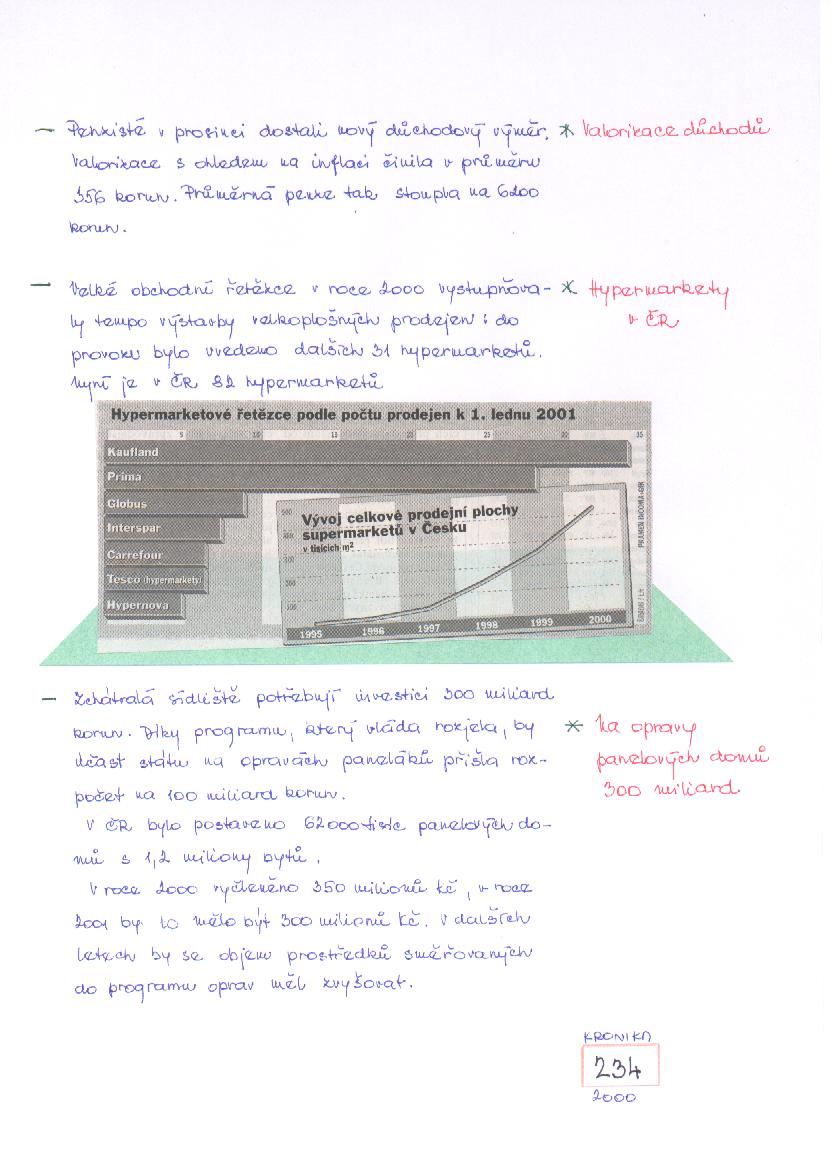 – Penzisté v prosinci dostali nový důchodový výměr. * Valorizace důchodů
Valorizace s ohledem na inflaci činila v průměru
356 korun. Průměrná penze tak stoupla na 6200
korun.
– Velké obchodní řetězce v roce 2000 vystupňova- * Hypermarkety
ly tempo výstavby velkoplošných prodejen: do v ČR
provozu bylo uvedeno dalších 31 hypermarketů.
Nyní je v ČR 82 hypermarketů
Hypermarketové řetězce podle počtu prodejen k 1. lednu 2001
5 10 15 20 25 30 35
Kaufland
Prima
Globus
Interspar
Carrefour
Tesco (hypermarkety)
Hypernova
Vývoj celkové prodejní plochy
supermarketů v Česku
v tisících m²
500
400
300
200
100
1995 1996 1997 1998 1999 2000
PRAMEN INCOMA-GfK
– Zchátralá sídliště potřebují investici 300 miliard
korun. Díky programu, který vláda rozjela, by * Na opravy
účast státu na opravách paneláků přišla roz- panelových domů
počet na 100 miliard korun. 300 miliard
V ČR bylo postaveno 62000 tisíc panelových do-
mů s 1,2 miliony bytů.
V roce 2000 vyčleněno 350 milionů Kč, v roce
2001 by to mělo být 300 milionů Kč. V dalších
letech by se objem prostředků směřovaných
do programu oprav měl zvyšovat.
KRONIKA
234
2000